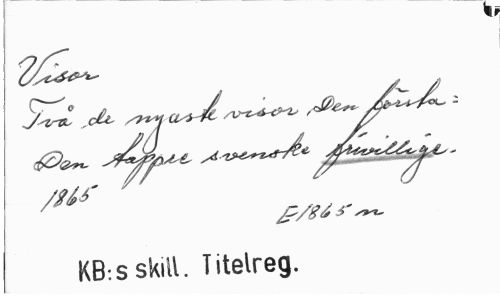 Visor
Två de nyaste visor Den första=
Den tappre svenske frivillige.
1865
E1865 n
KB:s skill. Titelreg.